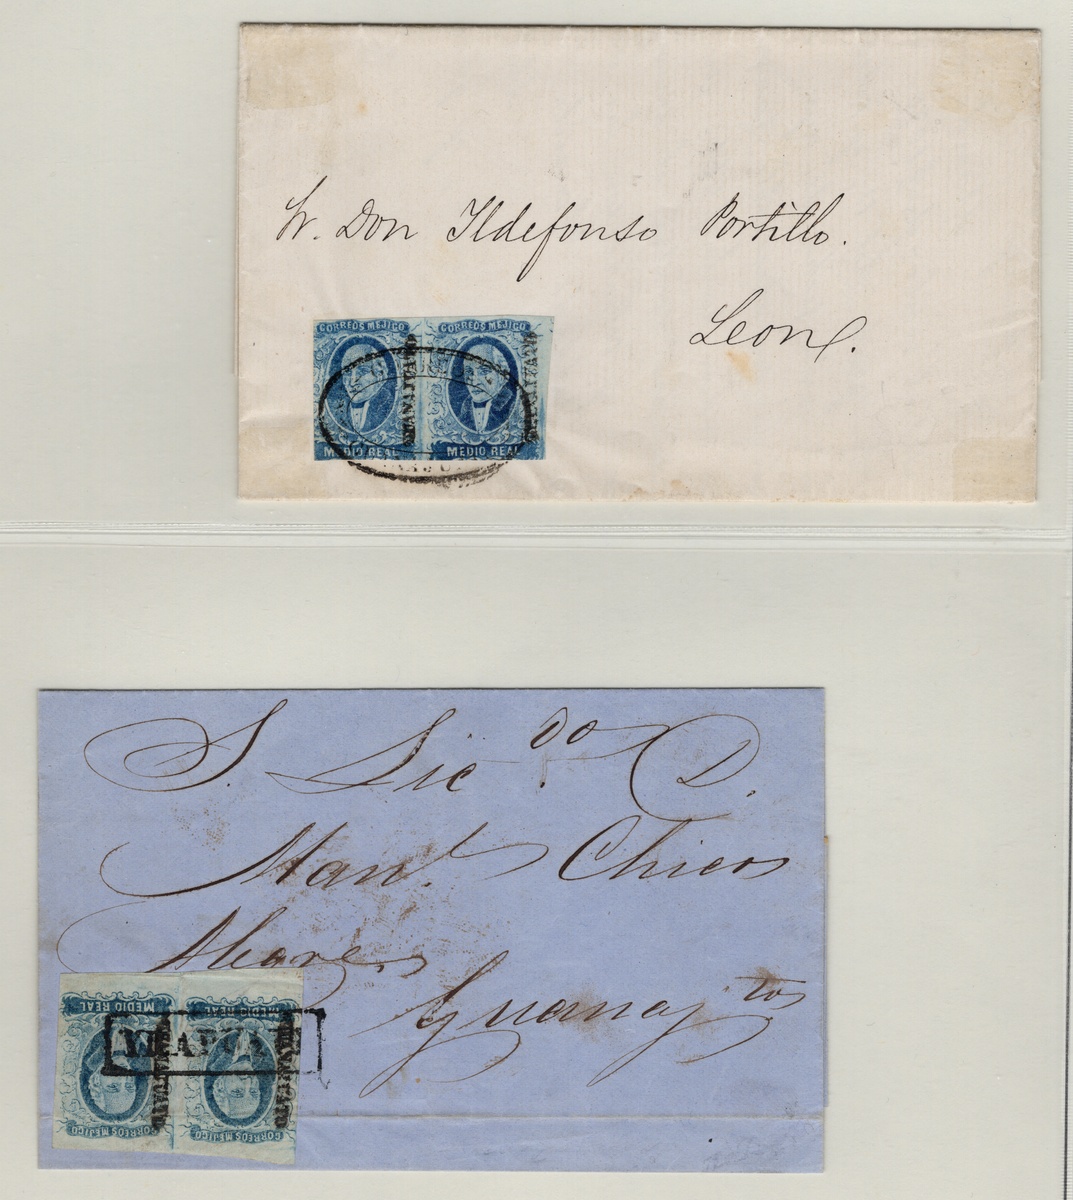 Sr. Don Ildefonso Portillo.
Leon.
CORREOS MEJICO CORREOS MEJICO
GUANAJUATO
MEDIO REAL MEDIO REAL
S. Lic.do D.
Man.l Chico
Alvarez
Guanajto
MEDIO REAL MEDIO REAL
YRAPUATO
GUANAJUATO GUANAJUATO
CORREOS MEJICO CORREOS MEJICO